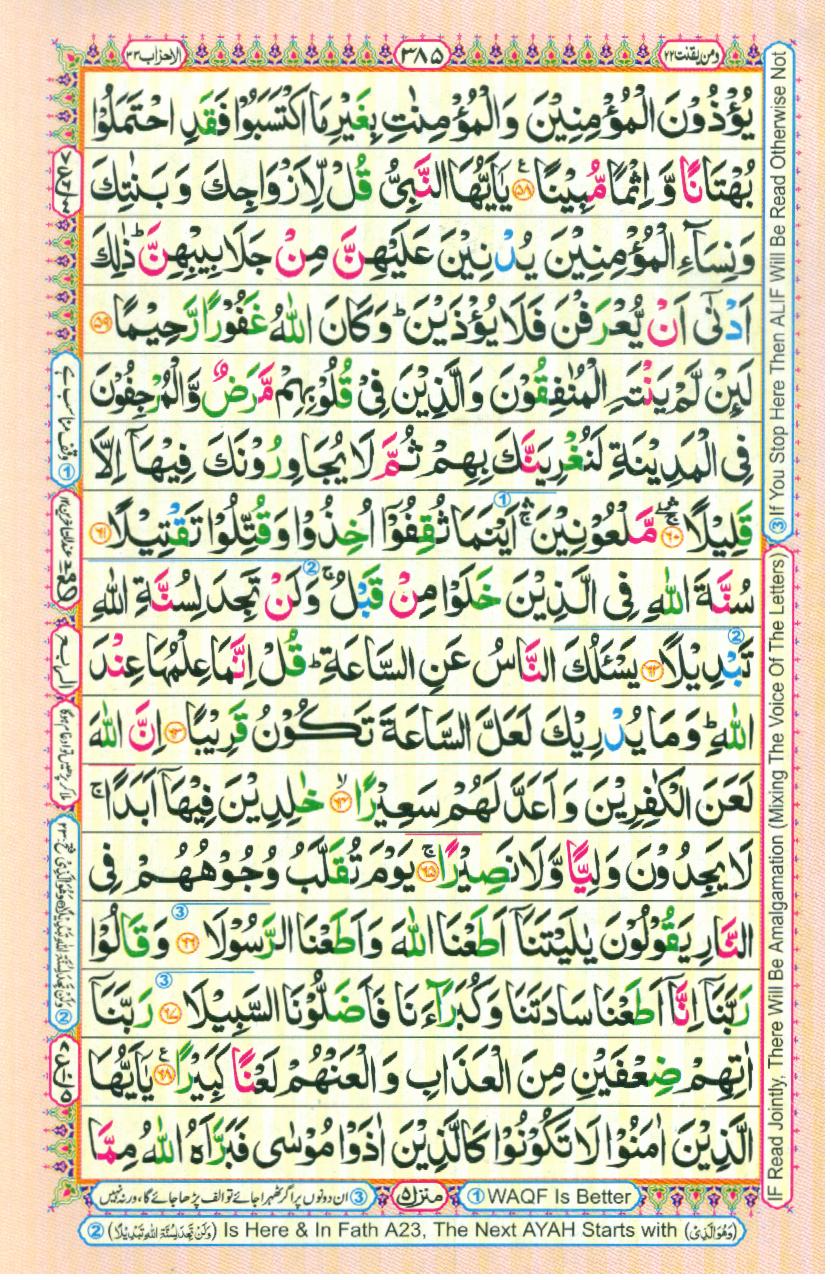 ومن یقنت ۲۲
۳۸۵
الاحزاب ۳۳
یُؤْذُوْنَ الْمُؤْمِنِیْنَ وَ الْمُؤْمِنٰتِ بِغَیْرِ مَا اكْتَسَبُوْا فَقَدِ احْتَمَلُوْا
بُهْتَانًا وَّ اِثْمًا مُّبِیْنًا ۵۸ یٰۤاَیُّهَا النَّبِیُّ قُلْ لِّاَزْوَاجِكَ وَ بَنٰتِكَ
وَ نِسَآءِ الْمُؤْمِنِیْنَ یُدْنِیْنَ عَلَیْهِنَّ مِنْ جَلَابِیْبِهِنَّ ؕ ذٰلِكَ
اَدْنٰۤی اَنْ یُّعْرَفْنَ فَلَا یُؤْذَیْنَ ؕ وَ كَانَ اللّٰهُ غَفُوْرًا رَّحِیْمًا ۵۹
لَىِٕنْ لَّمْ یَنْتَهِ الْمُنٰفِقُوْنَ وَ الَّذِیْنَ فِیْ قُلُوْبِهِمْ مَّرَضٌ وَّ الْمُرْجِفُوْنَ
فِی الْمَدِیْنَةِ لَنُغْرِیَنَّكَ بِهِمْ ثُمَّ لَا یُجَاوِرُوْنَكَ فِیْهَاۤ اِلَّا
قَلِیْلًا ۶۰ مَّلْعُوْنِیْنَ ۛۚ اَیْنَمَا ثُقِفُوْۤا اُخِذُوْا وَ قُتِّلُوْا تَقْتِیْلًا ۶۱
سُنَّةَ اللّٰهِ فِی الَّذِیْنَ خَلَوْا مِنْ قَبْلُ ۚ وَ لَنْ تَجِدَ لِسُنَّةِ اللّٰهِ
تَبْدِیْلًا ۶۲ یَسْـَٔلُكَ النَّاسُ عَنِ السَّاعَةِ ؕ قُلْ اِنَّمَا عِلْمُهَا عِنْدَ
اللّٰهِ ؕ وَ مَا یُدْرِیْكَ لَعَلَّ السَّاعَةَ تَكُوْنُ قَرِیْبًا ۶۳ اِنَّ اللّٰهَ
لَعَنَ الْكٰفِرِیْنَ وَ اَعَدَّ لَهُمْ سَعِیْرًا ۶۴ خٰلِدِیْنَ فِیْهَاۤ اَبَدًا ۚ
لَا یَجِدُوْنَ وَلِیًّا وَّ لَا نَصِیْرًا ۶۵ یَوْمَ تُقَلَّبُ وُجُوْهُهُمْ فِی
النَّارِ یَقُوْلُوْنَ یٰلَیْتَنَاۤ اَطَعْنَا اللّٰهَ وَ اَطَعْنَا الرَّسُوْلَا ۶۶ وَ قَالُوْا
رَبَّنَاۤ اِنَّاۤ اَطَعْنَا سَادَتَنَا وَ كُبَرَآءَنَا فَاَضَلُّوْنَا السَّبِیْلَا ۶۷ رَبَّنَاۤ
اٰتِهِمْ ضِعْفَیْنِ مِنَ الْعَذَابِ وَ الْعَنْهُمْ لَعْنًا كَبِیْرًا ۶۸ یٰۤاَیُّهَا
الَّذِیْنَ اٰمَنُوْا لَا تَكُوْنُوْا كَالَّذِیْنَ اٰذَوْا مُوْسٰی فَبَرَّاَهُ اللّٰهُ مِمَّا
③If You Stop Here Then ALIF Will Be Read Otherwise Not
IF Read Jointly, There Will Be Amalgamation (Mixing The Voice Of The Letters)
① وقف مناسب ہے
① WAQF Is Better
منزل ۵
③ ان دونوں پر اگر ٹھہرا جائے تو الف پڑھا جائے گا، ورنہ نہیں
② (وَلَنْ تَجِدَ لِسُنَّةِ اللّٰهِ تَبْدِیْلًا) Is Here & In Fath A23, The Next AYAH Starts with (وَهُوَ الَّذِیْ)